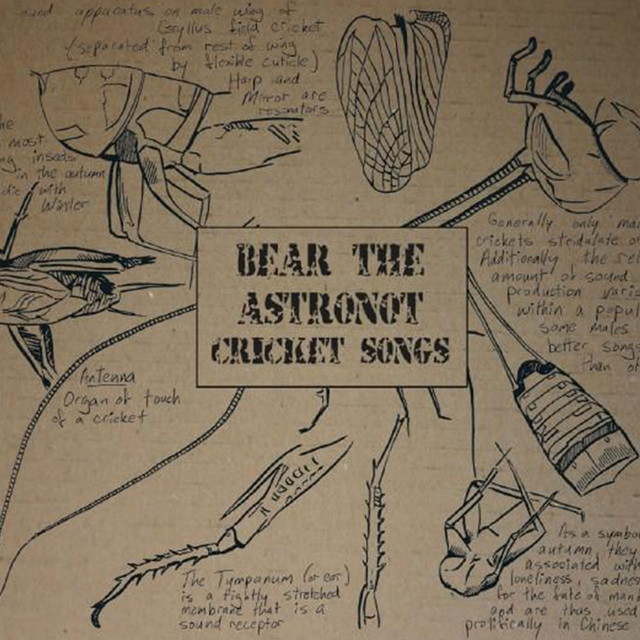 sound apparatus on male wing of
Gryllus field cricket
(separated from rest of wing
by flexible cuticle)
Harp and
Mirror are
resonators
most
insects
in the autumn
die with
Winter
BEAR THE
ASTRONOT
CRICKET SONGS
Generally only
crickets stridulate
Additionally, the
amount of sound
production
within a
some males
better songs
than
Antenna
Organ of touch
of a cricket
The Tympanum (or ear)
is a tightly stretched
membrane that is a
sound receptor
As a
autumn, they
associated
loneliness,
for the fate of
and are thus used
prolifically in Chinese